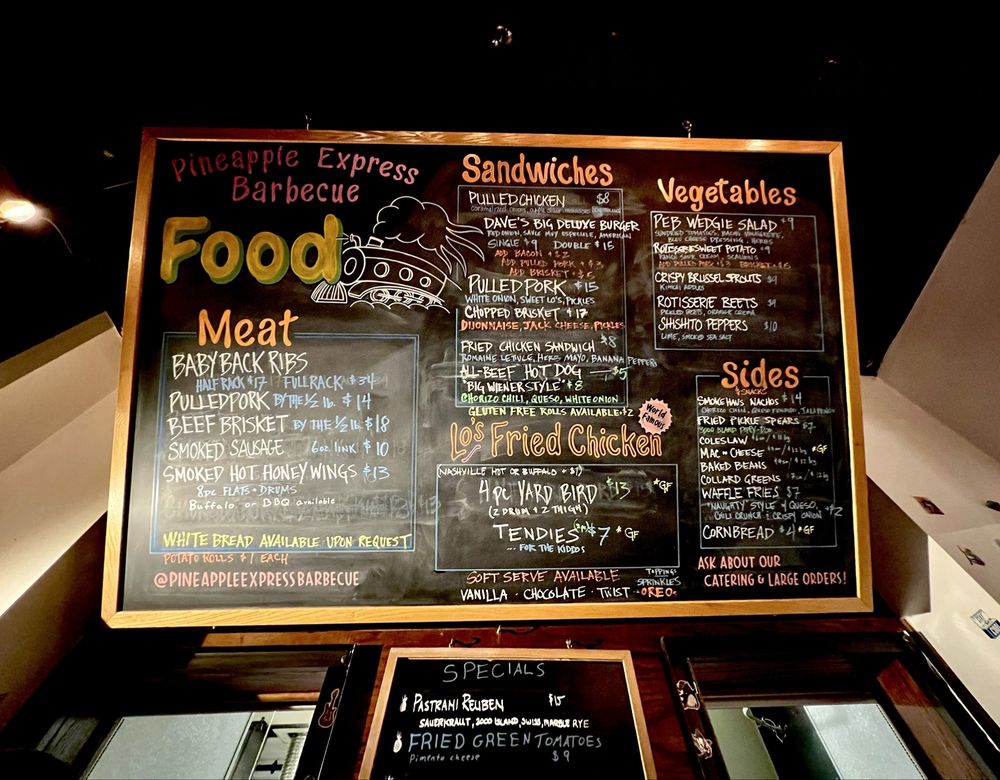 Pineapple Express
Barbecue
Food
Meat
BABY BACK RIBS
HALF RACK $17 FULL RACK $34
PULLED PORK BY THE 1/2 lb. $14
BEEF BRISKET BY THE 1/2 lb. $18
SMOKED SAUSAGE 6oz. link $10
SMOKED HOT HONEY WINGS $13
8pc FLATS + DRUMS
Buffalo or BBQ available
WHITE BREAD AVAILABLE UPON REQUEST
POTATO ROLLS $1 EACH
@PINEAPPLEEXPRESSBARBECUE
Sandwiches
PULLED CHICKEN $8
DAVE'S BIG DELUXE BURGER
RED ONION, SAUCE MUY ESPECIALE, AMERICAN
SINGLE $9 DOUBLE $15
ADD BACON + $2
ADD PULLED PORK + $3
ADD BRISKET + $5
PULLED PORK $15
WHITE ONION, SWEET LO'S, PICKLES
CHOPPED BRISKET $17
DIJONNAISE, JACK CHEESE, PICKLES
FRIED CHICKEN SANDWICH $8
ROMAINE LETTUCE, HERB MAYO, BANANA PEPPERS
ALL-BEEF HOT DOG — $5
"BIG WIENER STYLE" + 8
CHORIZO CHILI, QUESO, WHITE ONION
GLUTEN FREE ROLLS AVAILABLE +$2
World
Famous
Lo's Fried Chicken
(NASHVILLE HOT OR BUFFALO + $1)
4pc YARD BIRD $13 *GF
(2 DRUM + 2 THIGH)
TENDIES $7 *GF
... FOR THE KIDDOS
SOFT SERVE AVAILABLE
VANILLA · CHOCOLATE · TWIST
TOPPINGS
SPRINKLES
·OREO·
Vegetables
PEB WEDGIE SALAD $9
SUNDRIED TOMATOES, BACON VINAIGRETTE,
BLEU CHEESE DRESSING, HERBS
ROTISSERIE SWEET POTATO $9
RANCH SOUR CREAM, SCALLIONS
CRISPY BRUSSEL SPROUTS $9
KIMCHI APPLES
ROTISSERIE BEETS $9
PICKLED BEETS, ORANGE CREMA
SHISHITO PEPPERS $10
LIME, SMOKED SEA SALT
Sides
& SNACKS
SMOKEHAUS NACHOS $14
CHORIZO CHILI, QUESO FUNDIDO, JALAPENO
FRIED PICKLE SPEARS $7
COLESLAW
MAC N CHEESE *GF
BAKED BEANS
COLLARD GREENS
WAFFLE FRIES $7
"NAUGHTY" STYLE w/ QUESO,
CHILI CRUNCH + CRISPY ONION +$2
CORNBREAD $4 *GF
ASK ABOUT OUR
CATERING & LARGE ORDERS!
SPECIALS
PASTRAMI REUBEN $15
SAUERKRAUT, 1000 ISLAND, SWISS, MARBLE RYE
FRIED GREEN TOMATOES
Pimento cheese $9